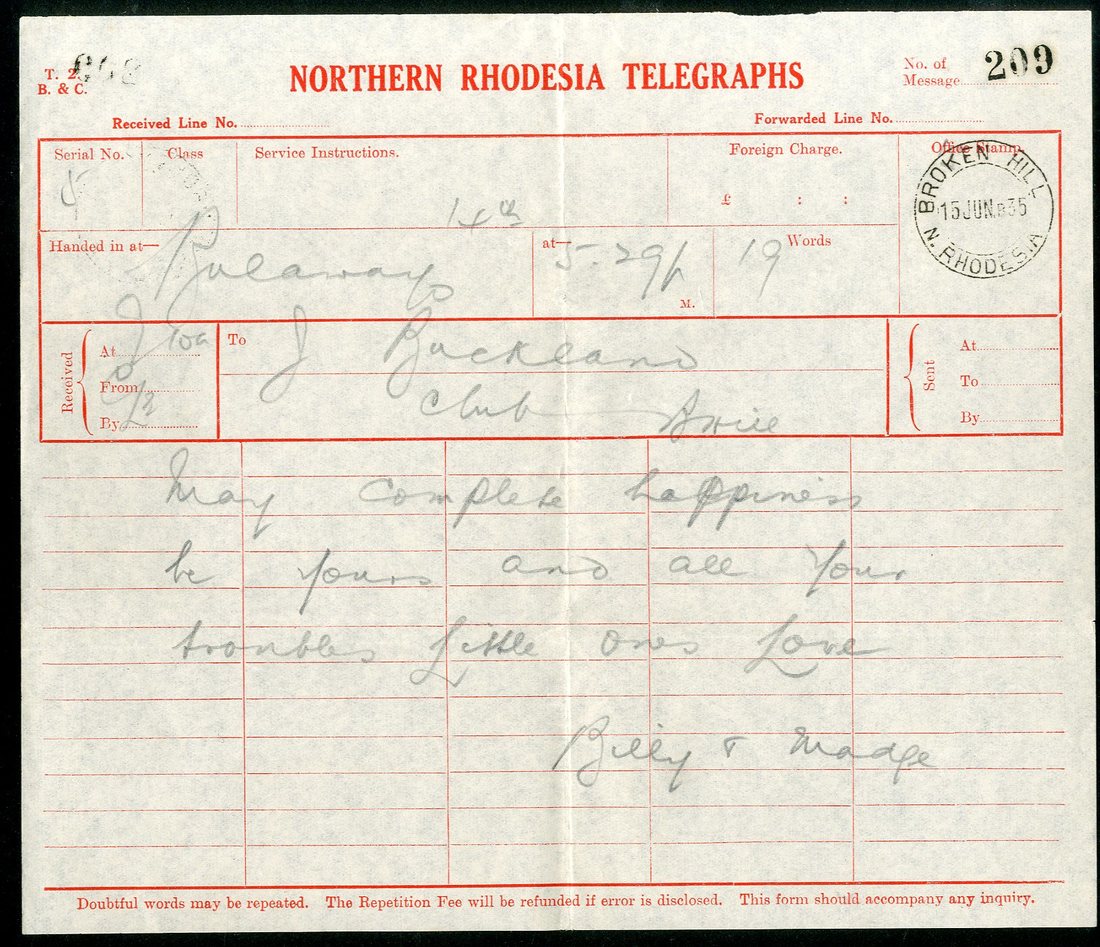 T. 2.
B. & C.
NORTHERN RHODESIA TELEGRAPHS
No. of
Message 209
Received Line No.
Forwarded Line No.
Serial No. Class Service Instructions. Foreign Charge. Office Stamp.
5
£ : :
14th
BROKEN HILL
15 JUN. 35
N. RHODESIA
Handed in at— Bulawayo at— 5-29p M. 19 Words
Received At 10a
From
By
To J Buckland
Club B Hill
Sent At
To
By
May complete happiness
be yours and all your
troubles little ones Love
Billy & Madge
Doubtful words may be repeated. The Repetition Fee will be refunded if error is disclosed. This form should accompany any inquiry.